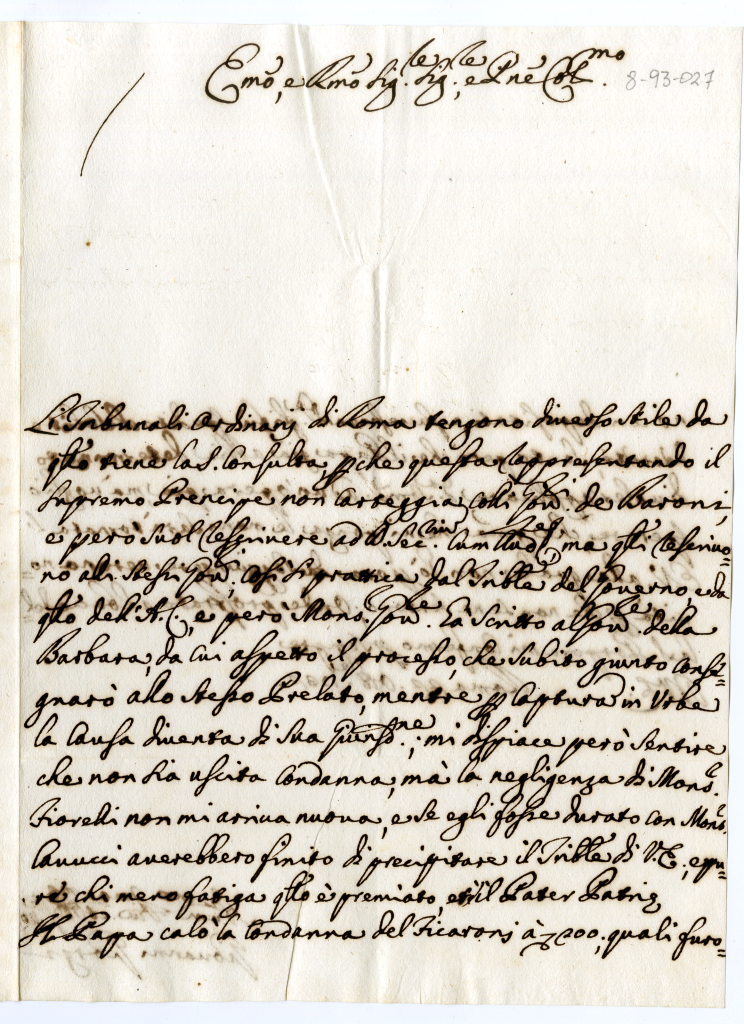 Emõ, e Rmõ Sig.re Sig.re, e Pne Col.mo
8-93-027
Li Tribunali Ordinarij di Roma tengono diverso stile da
qllo tiene la S. Consulta, pche questa rappresentando il
supremo Prencipe non carteggia colli Gov.ri de Baroni,
e però suol rescrivere ad D. Sec. ma qlli rescrivo=
no alli stessi Gov.ri, così si prattica dal Trible del Governo, e da
qllo dell'A.C., e però Mons. Gov.re hà scritto al Gov.re della
Barbara, da cui aspetto il processo, che subito giunto conse=
gnarò allo stesso Prelato, mentre p Captura in Urbe
la causa diventa di sua Giurisd.ne; mi dispiace però sentire
che non sia uscita Condanna, mà la negligenza di Mons.r
Fiorelli non mi arriva nuova, e se egli fosse durato con Mons.r
Cavucci averebbero finito di precipitare il Trible di V.E., epu=
re chi meno fatiga qllo è premiato, et il Pater Patrię
Il Papa calò la Condanna del Ficaronj à 200, quali furo=